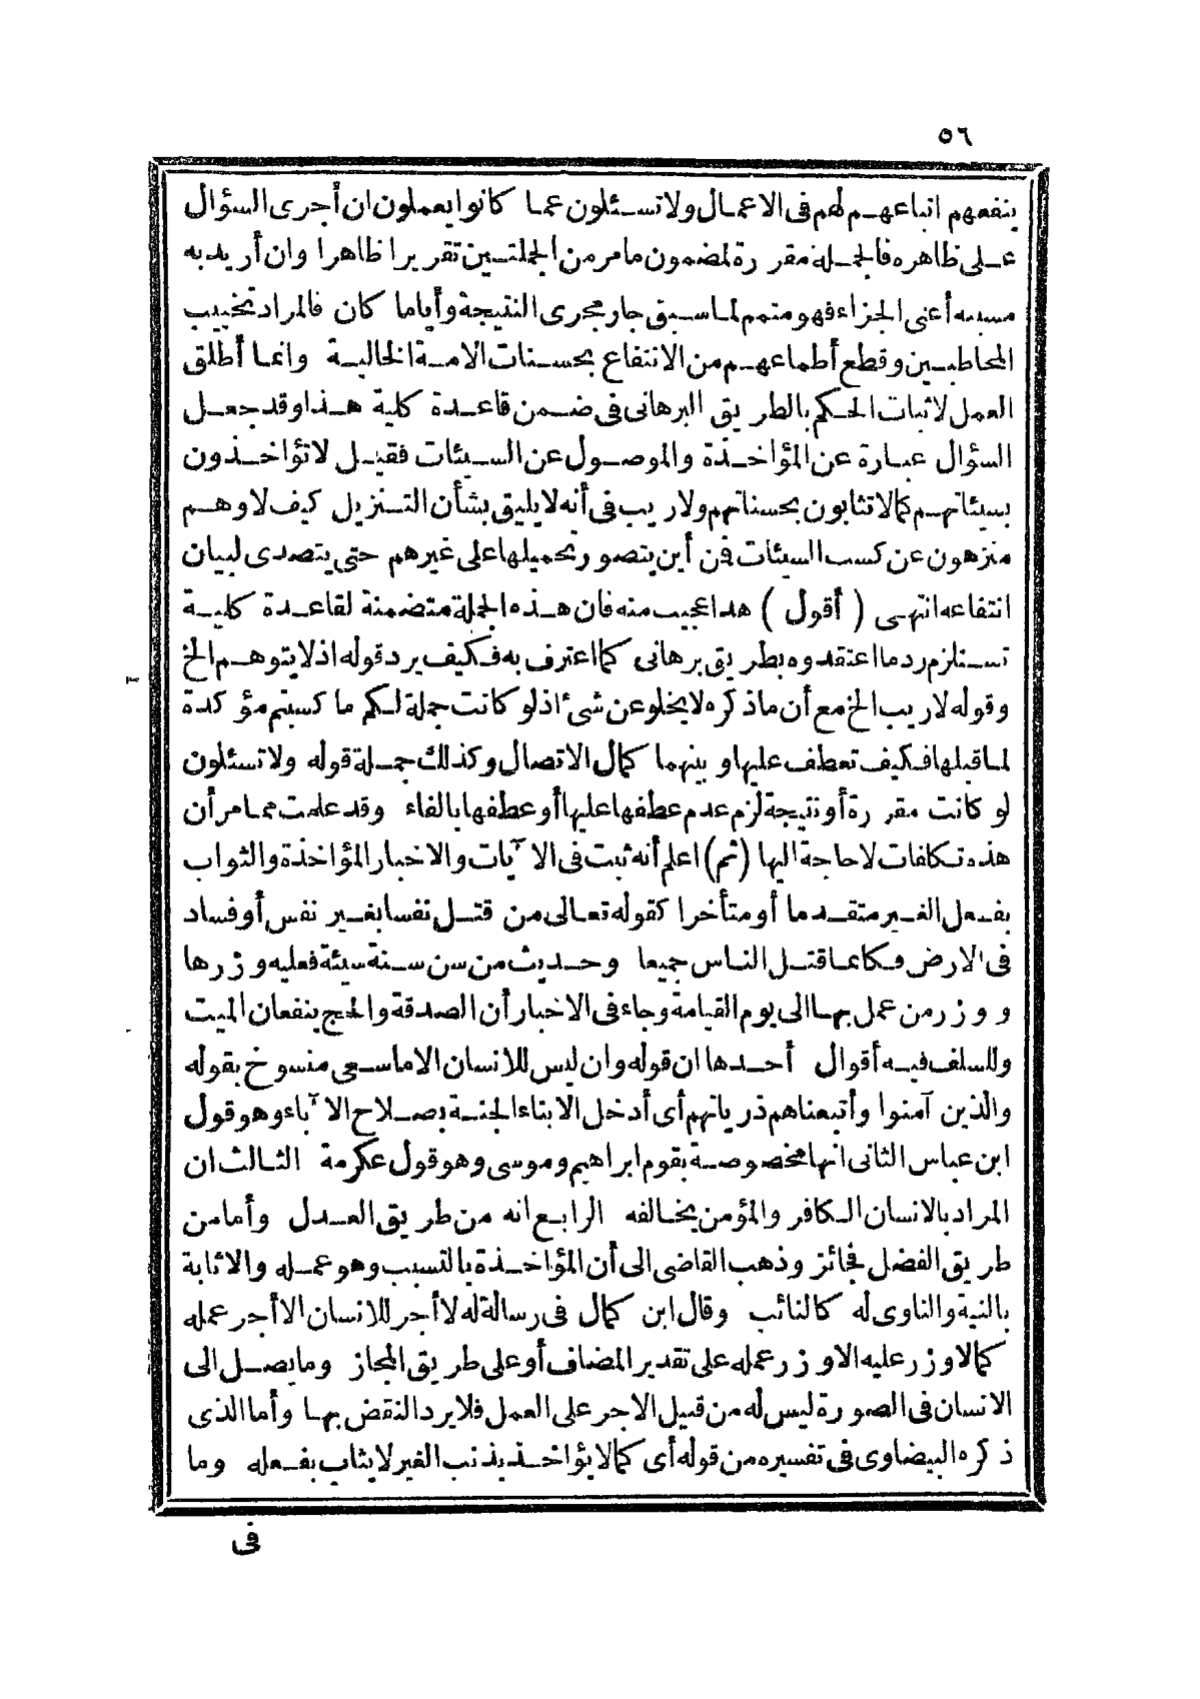 ٥٦
ينفعهم اتباعهم لهم فى الاعمال ولا تسئلون عما كانوا يعملون ان أجرى السؤال
على ظاهره فالجملة مقررة لمضمون ما مر من الجملتين تقريرا ظاهرا وان أريد به
مسببه أعنى الجزاء فهو متمم لما سبق جار مجرى النتيجة وأياما كان فالمراد تخييب
المخاطبين وقطع أطماعهم من الانتفاع بحسنات الامة الخالية وانما أطلق
العمل لاثبات الحكم بالطريق البرهانى فى ضمن قاعدة كلية هذا وقد جعل
السؤال عبارة عن المؤاخذة والموصول عن السيئات فقيل لا تؤاخذون
بسيئاتهم كما لا تثابون بحسناتهم ولا ريب فى أنه لا يليق بشأن التنزيل كيف لا وهم
منزهون عن كسب السيئات فمن أين يتصور تحميلها على غيرهم حتى يتصدى لبيان
انتفاعه انتهى (أقول) هذا عجيب منه فان هذه الجملة متضمنة لقاعدة كلية
تستلزم رد ما اعتقدوه بطريق برهانى كما اعترف به فكيف يرد قوله اذ لا يتوهم الخ
وقوله لا ريب الخ مع أن ما ذكره لا يخلو عن شئ اذ لو كانت جملة لكم ما كسبتم مؤكدة
لما قبلها فكيف تعطف عليها وبينهما كمال الاتصال وكذلك جملة قوله ولا تسئلون
لو كانت مقررة أو نتيجة لزم عدم عطفها عليها أو عطفها بالفاء وقد علمت مما مر أن
هذه تكلفات لا حاجة اليها (ثم) اعلم أنه ثبت فى الآيات والاخبار المؤاخذة والثواب
بفعل الغير متقدما أو متأخرا كقوله تعالى من قتل نفسا بغير نفس أو فساد
فى الارض فكأنما قتل الناس جميعا وحديث من سن سنة سيئة فعليه وزرها
ووزر من عمل بها الى يوم القيامة وجاء فى الاخبار أن الصدقة والحج ينفعان الميت
وللسلف فيه أقوال أحدها ان قوله وان ليس للانسان الا ما سعى منسوخ بقوله
والذين آمنوا وأتبعناهم ذرياتهم أى أدخل الابناء الجنة بصلاح الآباء وهو قول
ابن عباس الثانى انها مخصوصة بقوم ابراهيم وموسى وهو قول عكرمة الثالث ان
المراد بالانسان الكافر والمؤمن يخالفه الرابع انه من طريق العدل وأما من
طريق الفضل فجائز وذهب القاضى الى أن المؤاخذة بالتسبب وهو عمله والاثابة
بالنية والناوى له كالنائب وقال ابن كمال فى رسالة له لا أجر للانسان الا أجر عمله
كما لا وزر عليه الا وزر عمله على تقدير المضاف أو على طريق المجاز وما يصل الى
الانسان فى الصورة ليس له من قبيل الاجر على العمل فلا يرد النقض بها وأما الذى
ذكره البيضاوى فى تفسيره من قوله أى كما لا يؤاخذ بذنب الغير لا يثاب بفعله وما
فى